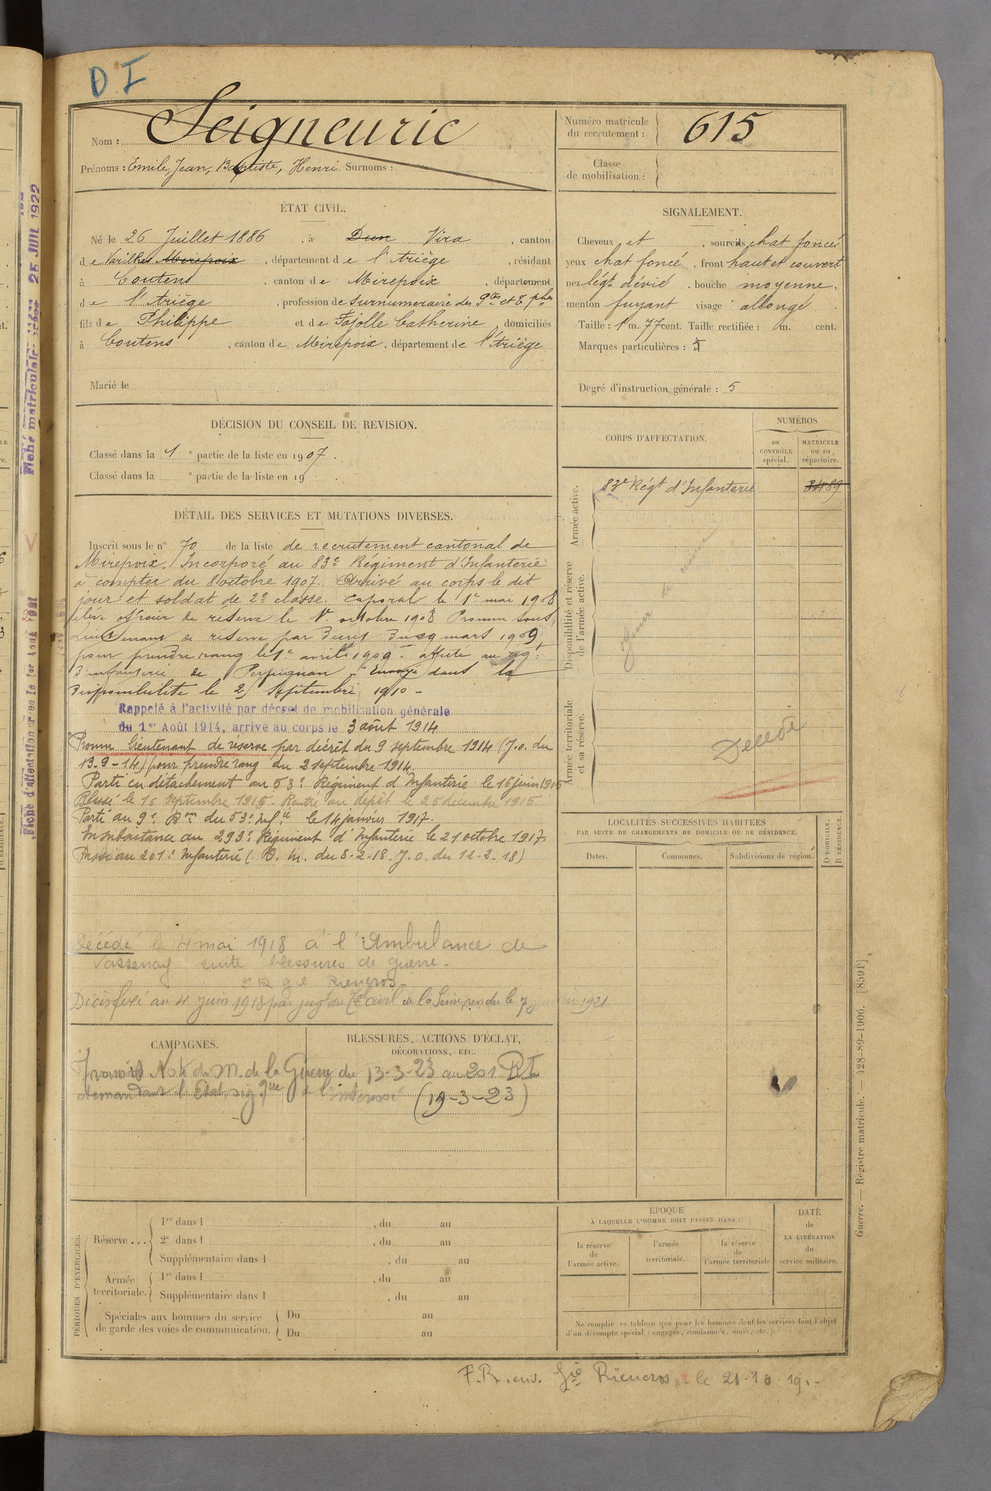 D I
Nom : Seigneuric
Prénoms : Emile, Jean, Baptiste, Henri. Surnoms :
Numéro matricule du recrutement : 615
Classe de mobilisation :
ÉTAT CIVIL.
Né le 26 Juillet 1886, à Dun Vira, canton
de Varilhes Mirepoix, département de l'Ariège, résidant
à Coutens, canton de Mirepoix, département
de l'Ariège, profession de surnuméraire des Ptes et T. phes
fils de Philippe et de Fajolle Catherine domiciliés
à Coutens, canton de Mirepoix, département de l'Ariège
Marié le
SIGNALEMENT.
Cheveux et, sourcils chat foncé
yeux chat foncé, front haut et couvert
nez légt dévié, bouche moyenne,
menton fuyant visage allongé
Taille : 1 m. 77 cent. Taille rectifiée : m. cent.
Marques particulières :
Degré d'instruction générale : 5
DÉCISION DU CONSEIL DE REVISION.
Classé dans la 1e partie de la liste en 1907.
Classé dans la e partie de la liste en 19
CORPS D'AFFECTATION.
NUMÉROS
AU CONTRÔLE spécial.
MATRICULE OU AU répertoire.
Armée active.
83e Régt d'Infanterie
Disponibilité et réserve de l'armée active.
Armée territoriale et sa réserve.
Décédé
DÉTAIL DES SERVICES ET MUTATIONS DIVERSES.
Inscrit sous le n° 70 de la liste de recrutement cantonal de
Mirepoix. Incorporé au 83e Régiment d'Infanterie
à compter du 8 octobre 1907. Arrivé au corps le dit
jour et soldat de 2e classe. Caporal le 1er mai 1908
élève officier de réserve le 1er octobre 1908 Promu sous
lieutenant de réserve par décret du 29 mars 1909
pour prendre rang le 1er avril 1909. affecté au
d'infanterie de Perpignan. Envoyé dans la
disponibilité le 25 septembre 1910 -
Rappelé à l'activité par décret de mobilisation générale
du 1er Août 1914, arrivé au corps le 3 août 1914
Promu lieutenant de réserve par décrit du 9 septembre 1914 (J.O. du
13-9-14) pour prendre rang du 2 septembre 1914.
Parti en détachement au 53e Régiment d'Infanterie le 16 juin 1915
Blessé le 16 septembre 1915. Rentré au dépôt le 26 décembre 1915.
Parti au 9e Bon du 53e Infie le 14 janvier 1917.
En subsistance au 293e Régiment d'Infanterie le 21 octobre 1917.
Passé au 201e Infanterie (D. M. du 5-2-18. J.O. du 12-2-18)
Décédé le 4 mai 1918 à l'Ambulance de
Vassenay suite blessures de guerre.
Rieucros
LOCALITÉS SUCCESSIVES HABITÉES
PAR SUITE DE CHANGEMENTS DE DOMICILE OU DE RÉSIDENCE.
Dates.
Communes.
Subdivisions de région.
D DOMICILE. R RÉSIDENCE.
CAMPAGNES.
BLESSURES, ACTIONS D'ÉCLAT,
DÉCORATIONS, ETC.
du M. de la Guerre du 13-3-23 au 201 RI
demandant l'Etat sig que de l'intéressé (19-3-23)
PÉRIODES D'EXERCICES.
Réserve ...
1re dans l , du au
2e dans l , du au
Supplémentaire dans l , du au
Armée territoriale.
1re dans l , du au
Supplémentaire dans l , du au
Spéciales aux hommes du service de garde des voies de communication.
Du au
Du au
ÉPOQUE
À LAQUELLE L'HOMME DOIT PASSER DANS :
la réserve de l'armée active.
l'armée territoriale.
la réserve de l'armée territoriale
DATE de LA LIBÉRATION du service militaire.
Ne remplir ce tableau que pour les hommes dont les services font l'objet
d'un décompte spécial (engagés, condamnés, omis, etc.).
Guerre. — Registre matricule. — 428-89-1906. [8591].
F.R. env. Gie Rieucros le 21.10.19.-